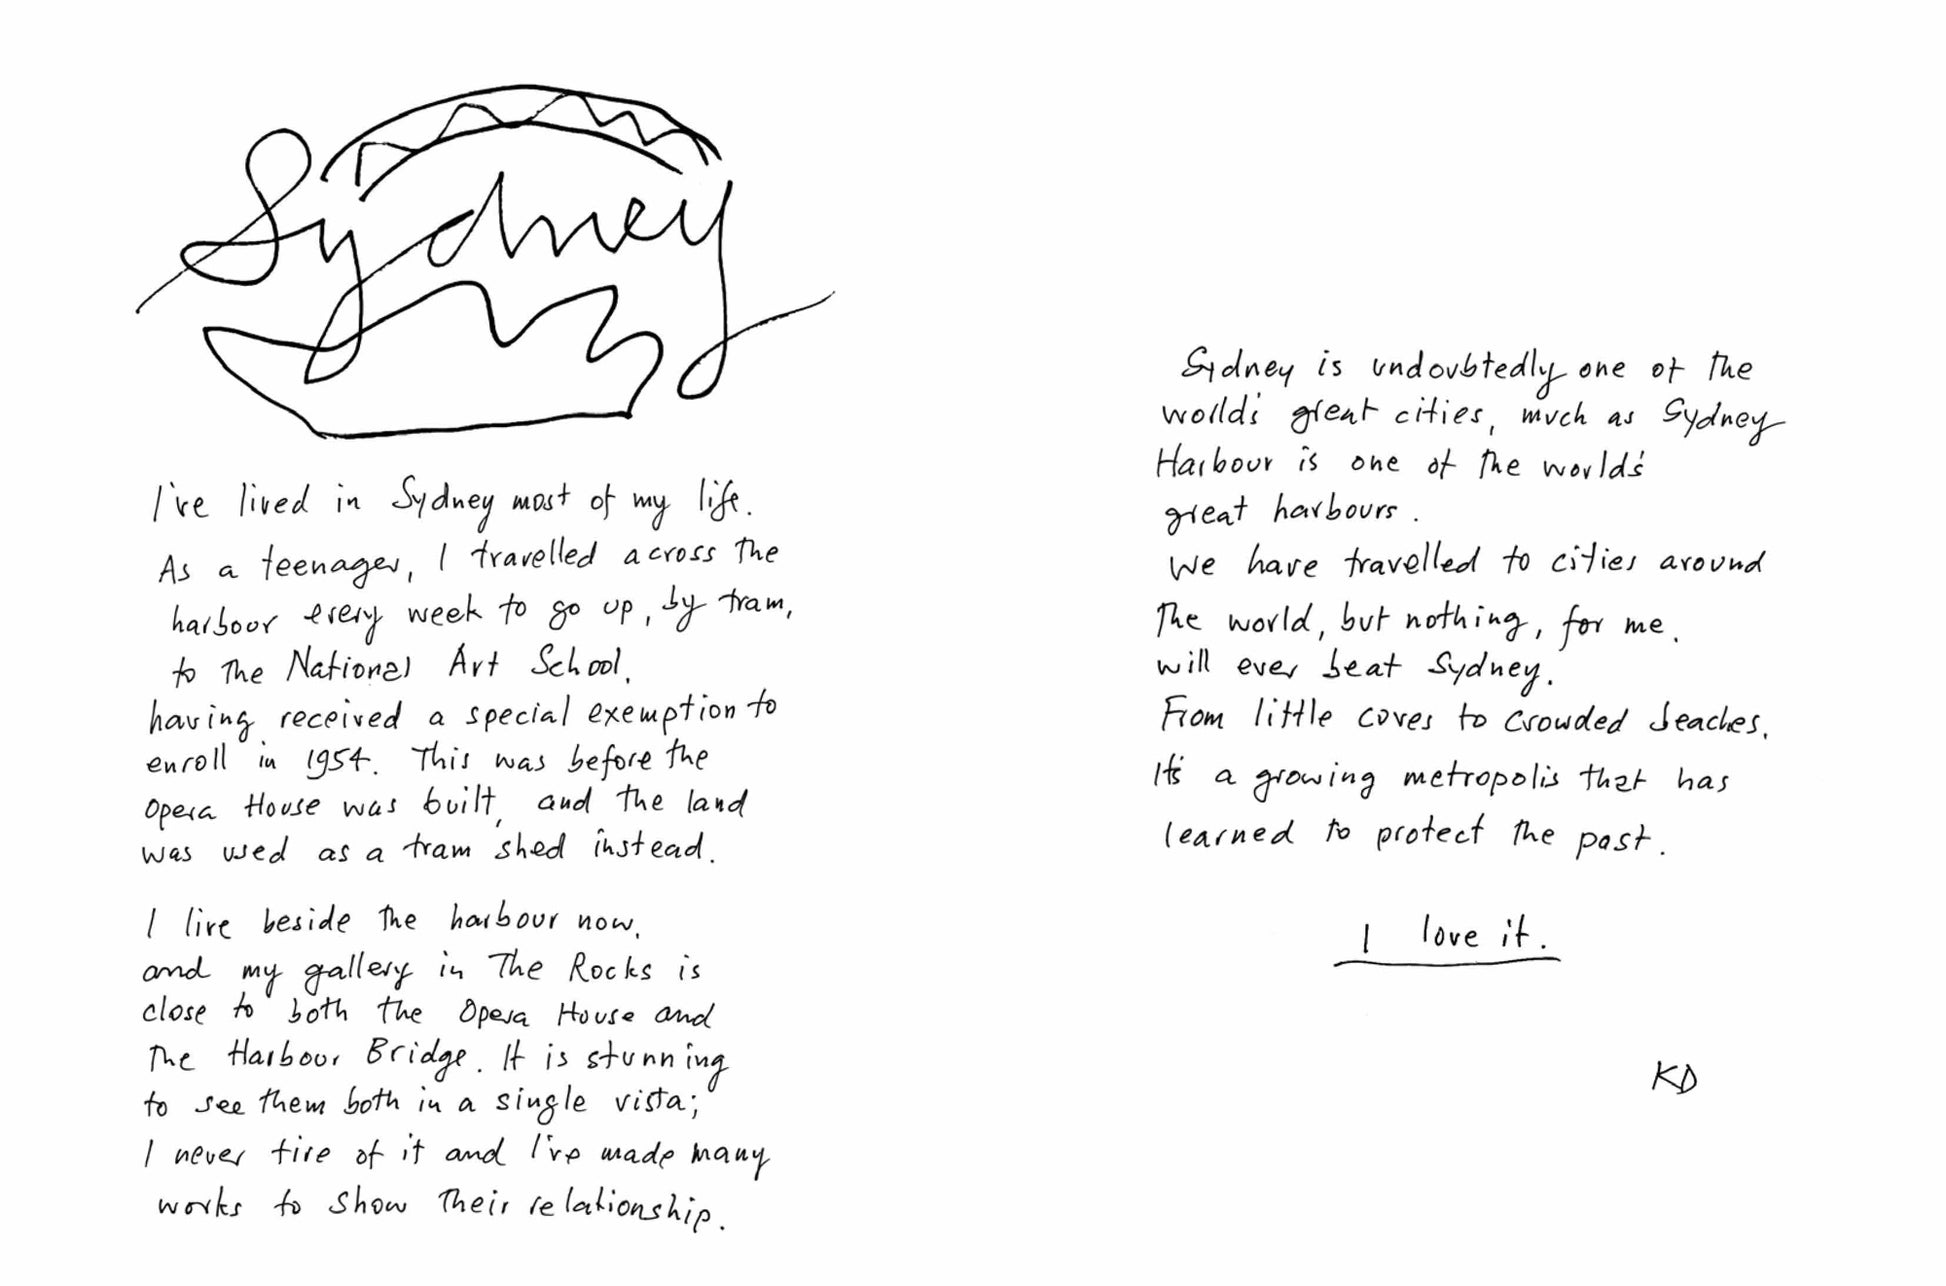 Sydney
I've lived in Sydney most of my life.
As a teenager, I travelled across the
harbour every week to go up, by tram,
to the National Art School,
having received a special exemption to
enroll in 1954. This was before the
Opera House was built, and the land
was used as a tram shed instead.
I live beside the harbour now,
and my gallery in The Rocks is
close to both the Opera House and
the Harbour Bridge. It is stunning
to see them both in a single vista;
I never tire of it and I've made many
works to show their relationship.
Sydney is undoubtedly one of the
world's great cities, much as Sydney
Harbour is one of the world's
great harbours.
We have travelled to cities around
the world, but nothing, for me,
will ever beat Sydney.
From little coves to crowded beaches,
It's a growing metropolis that has
learned to protect the past.
I love it.
KD